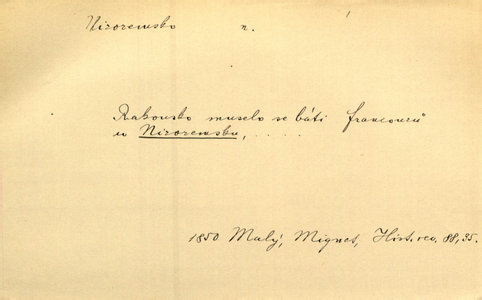 Nizozemsko n.
Rakousko muselo se báti francouzů
u Nizozemsku, . . . . .
1850 Malý, Mignet, Hist. rev. 88, 35.